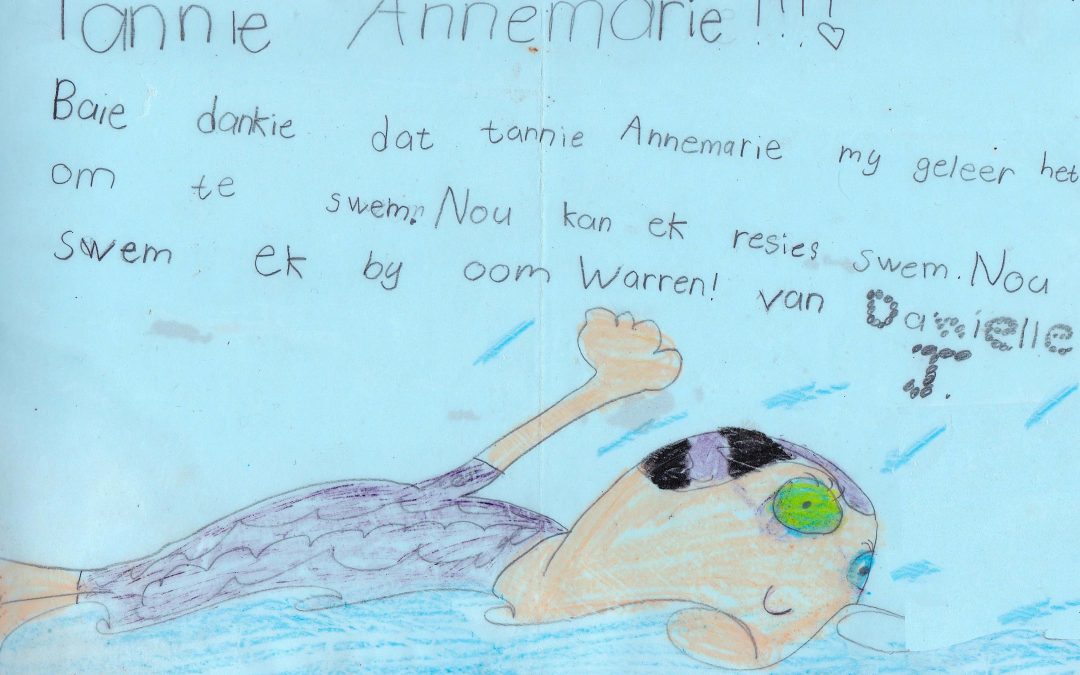 Tannie Annemarie!!!!
Baie dankie dat tannie Annemarie my geleer het
om te swem. Nou kan ek resies swem. Nou
swem ek by oom Warren! van Danielle
J.